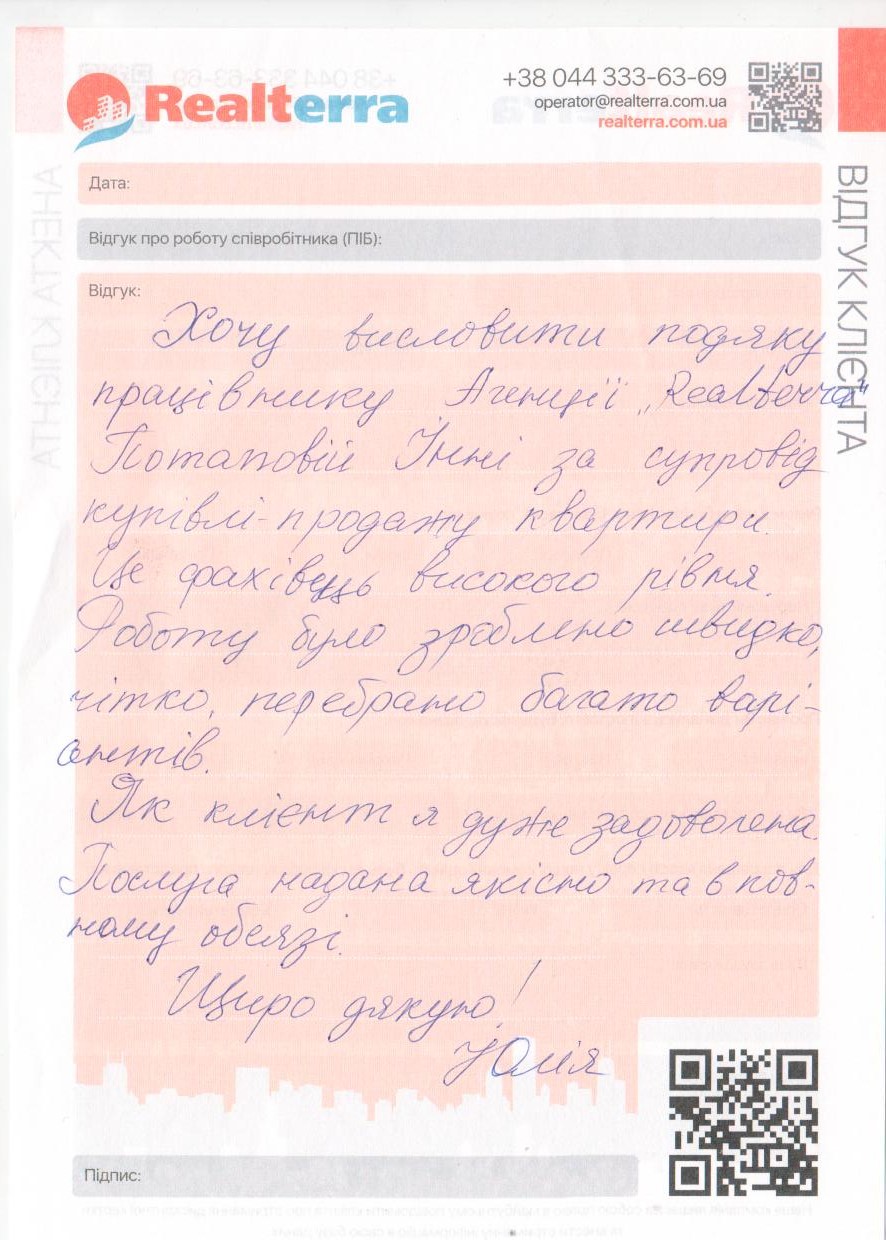 Realterra
+38 044 333-63-69
operator@realterra.com.ua
realterra.com.ua
ВІДГУК КЛІЄНТА
АНЕКТА КЛІЄНТА
Дата:
Відгук про роботу співробітника (ПІБ):
Відгук:
Хочу висловити подяку
працівнику Агенції „Realterra"
Потаповій Інні за супровід
купівлі-продажу квартири.
Це фахівець високого рівня.
Роботу було зроблено швидко,
чітко, перебрано багато варі-
антів.
Як клієнт я дуже задоволена.
Послуга надана якісно та в пов-
ному обсязі.
Щиро дякую!
Юлія
Підпис: